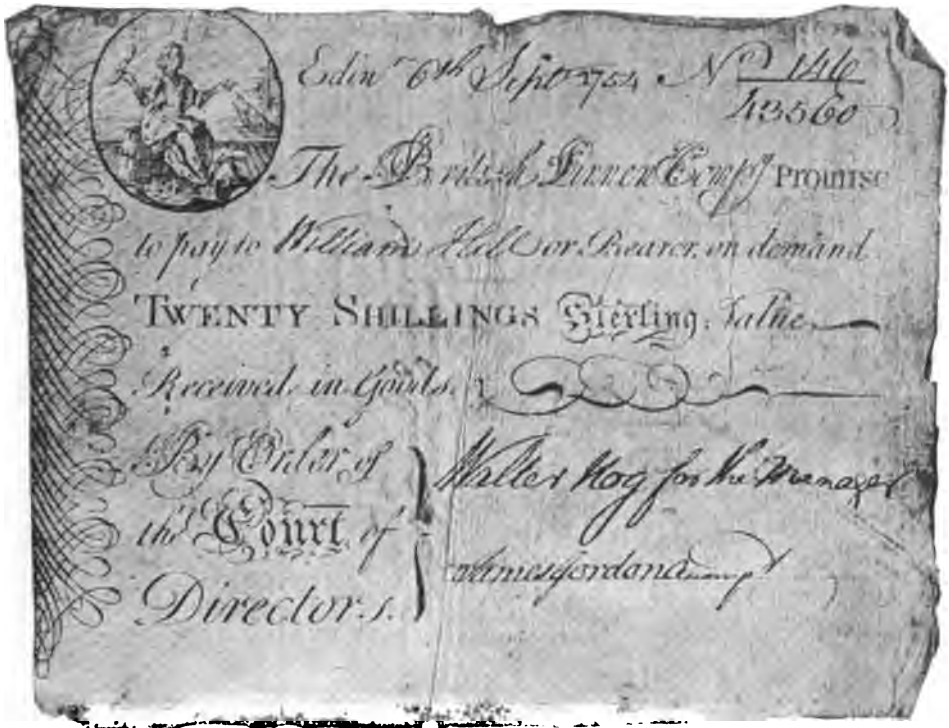 Edinr 6th Septr 1754 No 146
43560
The British Linnen Compy Promise
to pay to William Hill or Bearer on demand
TWENTY SHILLINGS Sterling. Value
Received in Goods.
By Order of
the Court of
Directors.
Walter Hog for the Manager
James Gordon